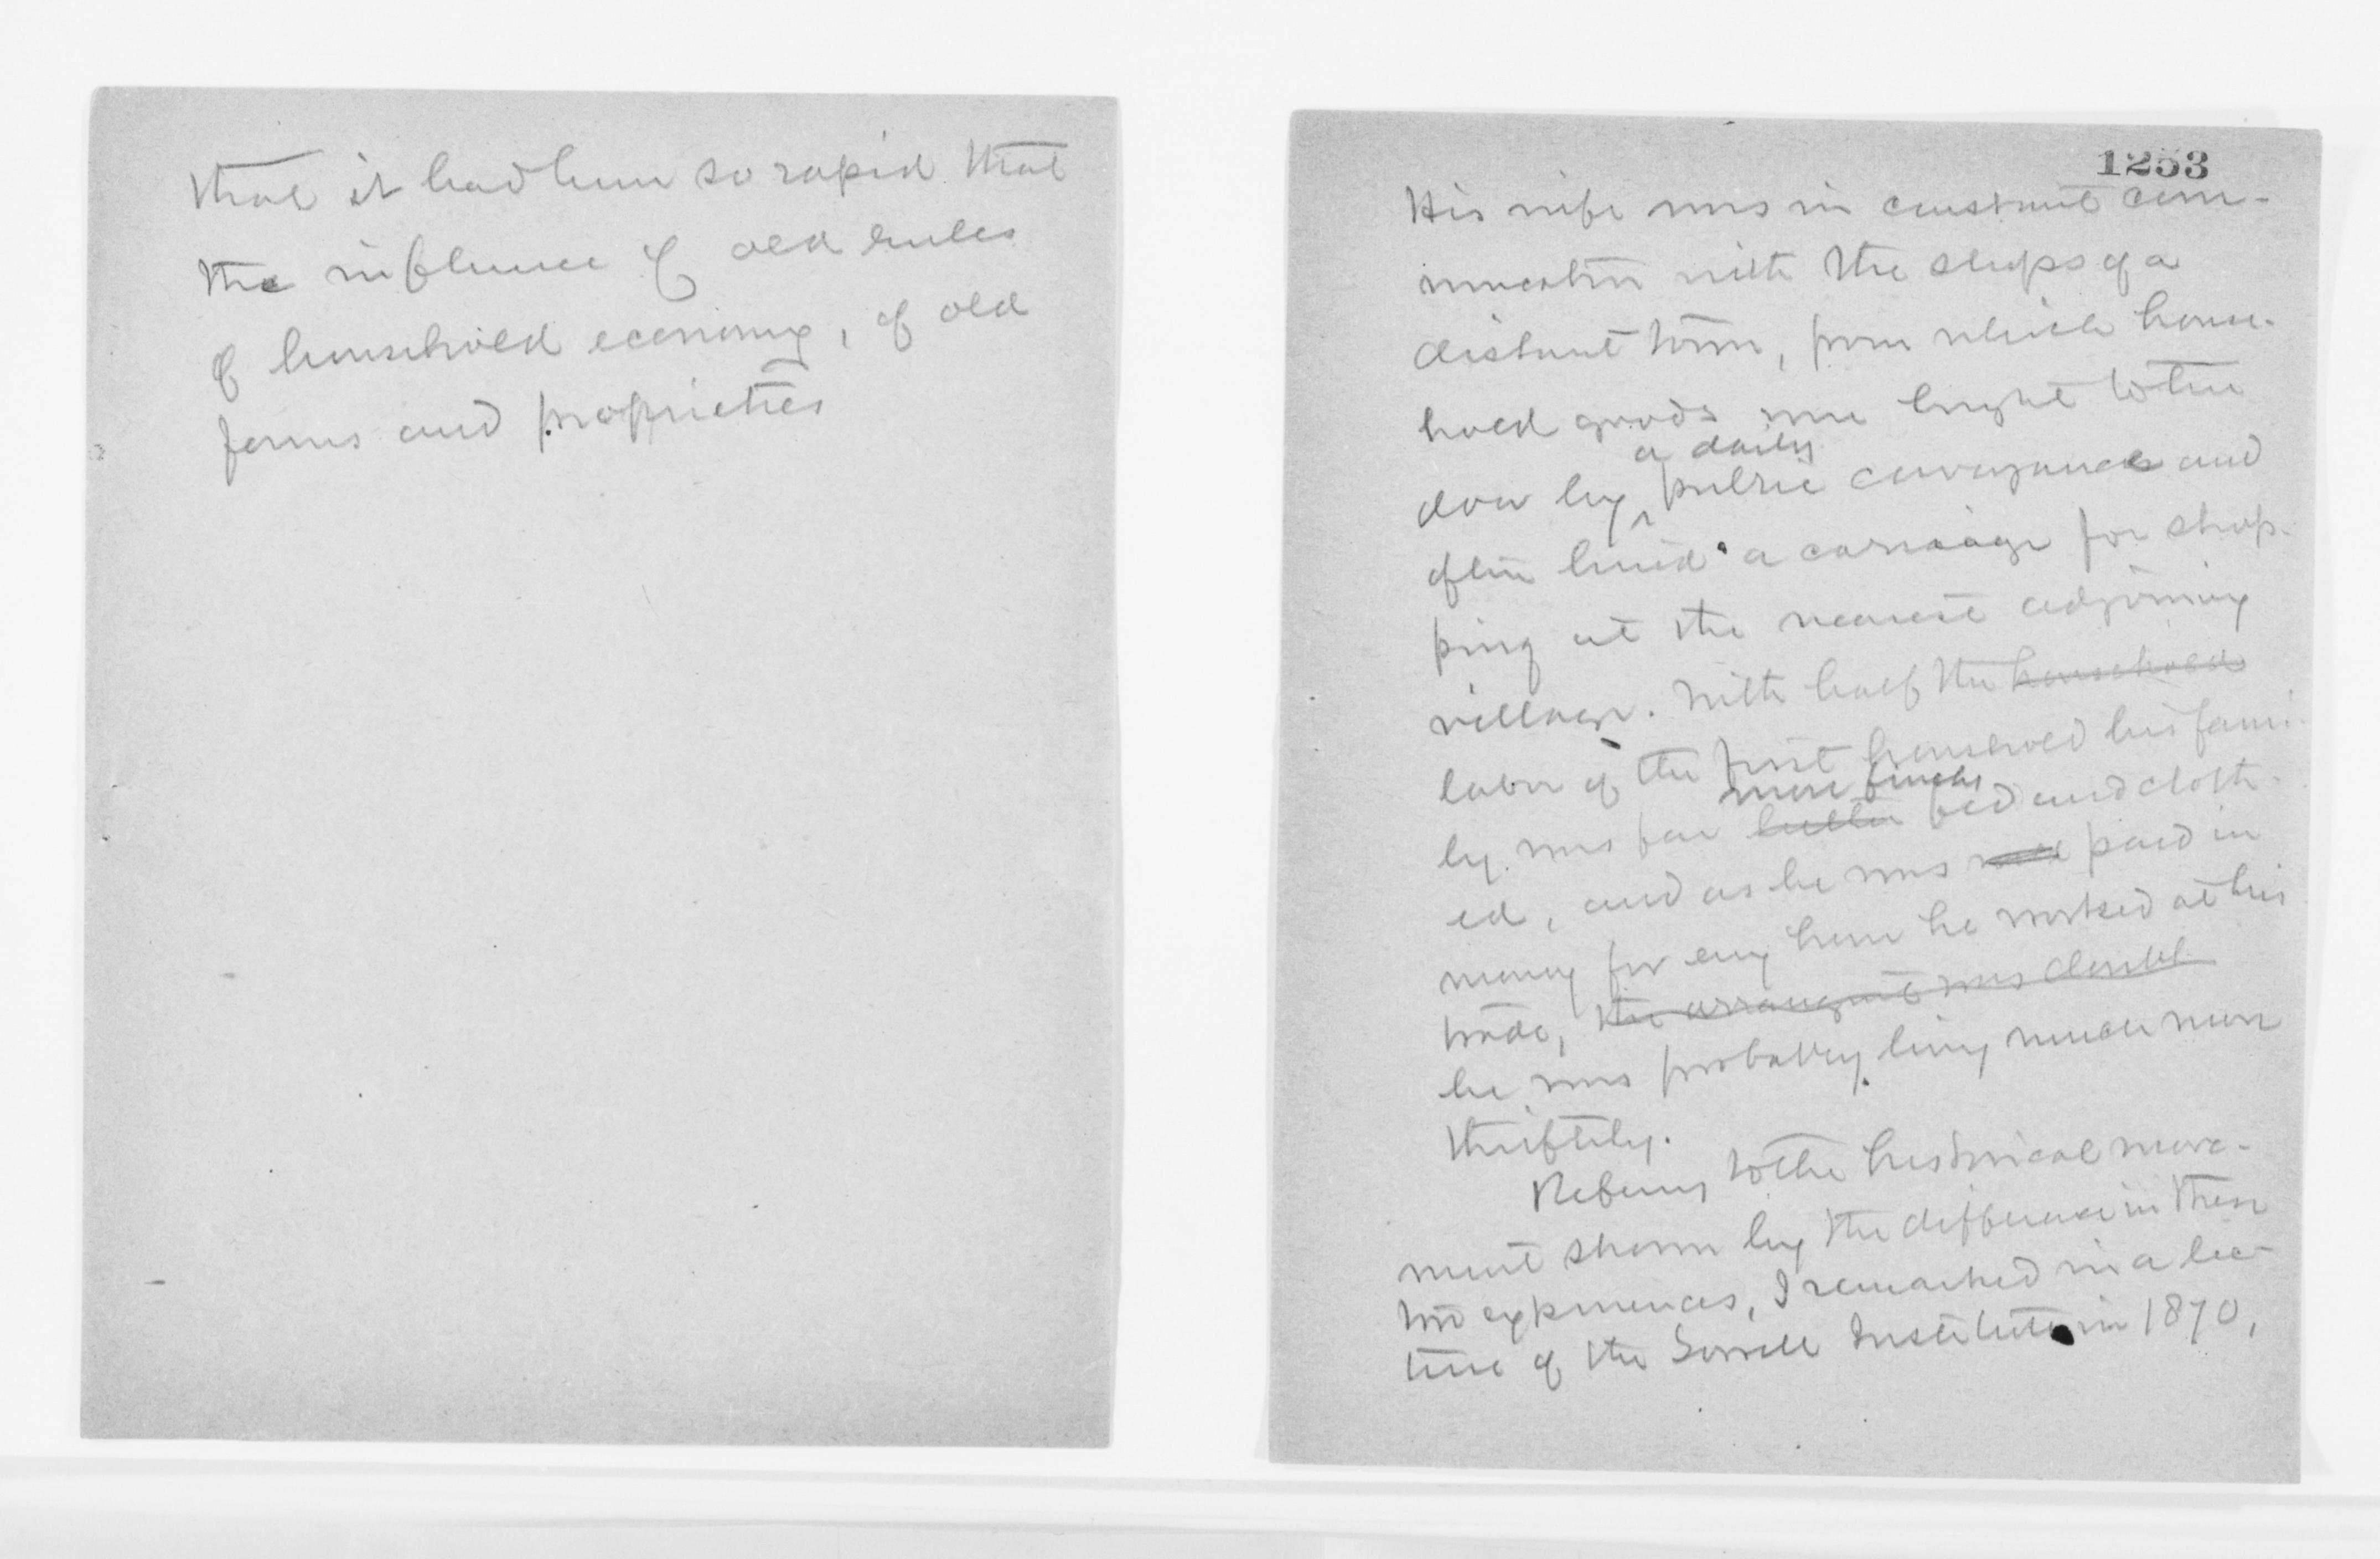 that it had been so rapid that
the influence of old rules
of household economy, of old
forms and proprieties
1253
His wife was in constant com-
munication with the shops of a
distant town, from which house-
hold goods were brought to the
a daily
door by ^ public conveyance and
often hired a carriage for shop-
ping at the nearest adjoining
village. With half the household
labor of the first household his fami-
more finely
ly was far better fed and cloth-
ed, and as he was paid in
money for every hour he worked at his
trade, the arrangement was doubtl
he was probably living much more
thriftily.
Referring to the historical move-
ment shown by the difference in these
two experiences, I remarked in a lec-
ture of the Lowell Institute in 1870,